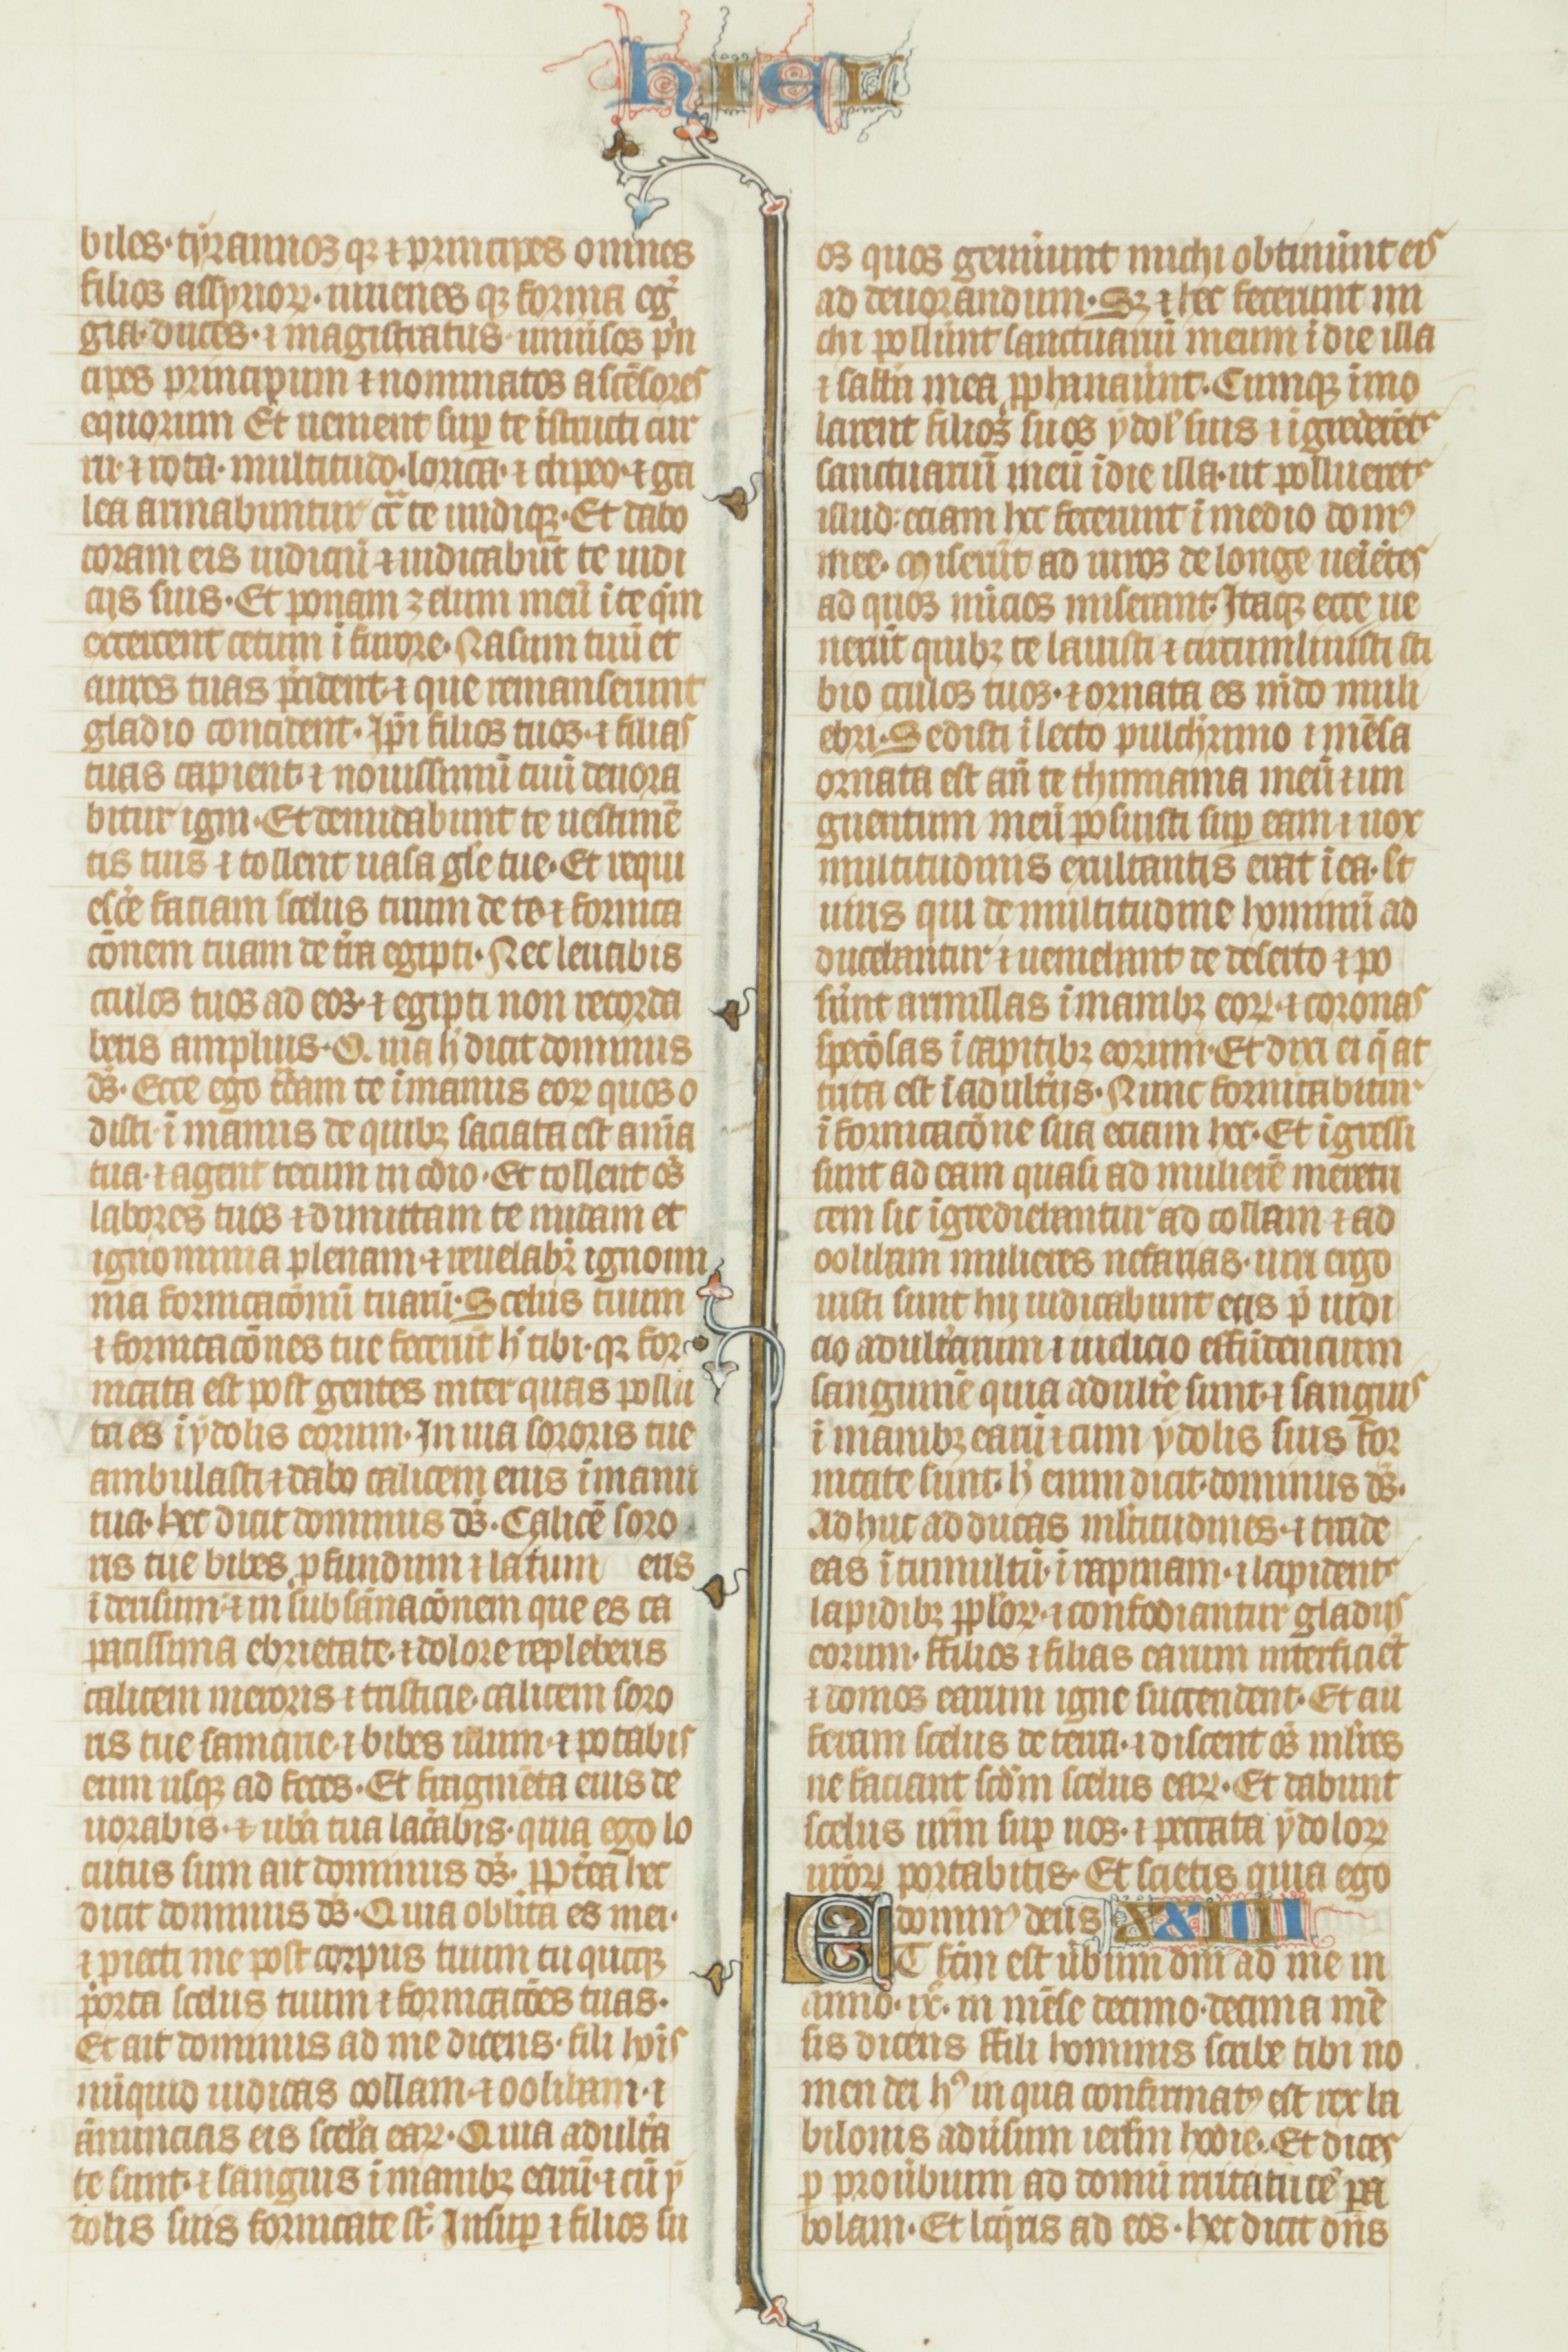 hier
biles· tyrannos q₃ ⁊ principes omnes
filios assyrioꝝ· iuuenes q₃ forma eg̕
gia· duces· ⁊ magistratus· uniu̕sos pn̕
cipes principum ⁊ nominatos ascēsores
equorum Et uenient suꝑ te īstructi cur
ru· ⁊ rota· multitudo· lorica· ⁊ clipeo· ⁊ ga
lea armabuntur cͣ te undiqꝫ· Et dabo
coram eis iudiciū ⁊ iudicabūt te iudi
ciis suis· Et ponam zelum meū ī te quem
exercent tecum ī furore· Nasum tuū et
aures tuas p̕cident· ⁊ que remanserunt
gladio concident· Ip̄i filios tuos· ⁊ filias
tuas capient· ⁊ nouissimū tuū deuora
bitur igni· Et denudabunt te uestimē
tis tuis ⁊ tollent uasa gl̄e tue· Et requi
esc̕e faciam scelus tuum de te· ⁊ fornica
cōnem tuam de tr̄a egipti· Nec leuabis
oculos tuos ad eos· ⁊ egipti non recorda
beris amplius· Quia h̕ dicit dominus
ds̄· Ecce ego tͣdam te ī manus eoꝝ quos o
disti· ī manus de quibꝫ saciata est anīa
tua· ⁊ agent tecum in odio· Et tollent os̄
labores tuos ⁊ dimittam te nudam et
ignominia plenam· ⁊ reuelabit̕ ignomi
nia fornicacōnū tuarū· Scelus tuum
⁊ fornicacōnes tue fecerūt h̕ tibi· q₃ for
nicata est post gentes inter quas pollu
ta es ī ydolis eorum· In uia sororis tue
ambulasti ⁊ dabo calicem eius ī manu
tua· hec dicit dominus ds̄· Calicē soro
ris tue bibes ꝓfundum ⁊ latum eris
ī derisum· ⁊ in subsānacōnem que es ca
pacissima ebrietate· ⁊ dolore repleberis
calicem meroris ⁊ tristicie· calicem soro
ris tue samarie· ⁊ bibes illum· ⁊ potabis
eum usqꝫ ad feces· Et fragmēta eius de
uorabis· ⁊ ub̕a tua lac̕abis· quia ego lo
cutus sum ait dominus ds̄· Ꝓpt̕ea hec
dicit dominus ds̄· Quia oblita es mei·
⁊ ꝓiecisti me post corpus tuum tu quoqꝫ
porta scelus tuum ⁊ fornicacōes tuas·
Et ait dominus ad me dicens· fili hoīs
nūquid iudicas oollam· ⁊ oolibam· ⁊
ānuncias eis scel̕a eaꝝ· Quia adult̕a
te sunt· ⁊ sanguis ī manibꝫ earū· ⁊ cū y
dolis suis fornicate st̄· Insuꝑ ⁊ filios su
os quos genuerunt michi obtulerūnt eis
ad deuorandum· Sꝫ ⁊ hec fecerunt mi
chi polluerūnt sanctuariū meum ī die illa
⁊ sabb̄a mea ꝓphanauerūnt· Cumqꝫ īmo
larent filios suos ydol̕ suis ⁊ īgrederēt̕
sanctuariū meū ī die illa· ut polluerent
illud· eciam hec fecerunt ī medio domꝰ
mee· Miserūt ad uiros de longe ueīetes
ad quos nūcios miserant· Itaqꝫ ecce ue
nerūt quibꝫ te lauisti ⁊ circumlinisti sti
bio oculos tuos· ⁊ ornata es mūdo muli
ebri· Sedisti ī lecto pulch̕rimo ⁊ mēsa
ornata est an̄ te thimiama meū ⁊ un
guentum meū posuisti suꝑ eam ⁊ uox
multitudinis exultantis erat ī ea· ⁊ ī
uiris qui de multitudine hominū ad
ducebantur ⁊ ueniebant de deserto ⁊ po
suerūnt armillas ī manibꝫ eoꝝ· ⁊ coronas
speciōsas ī capitibꝫ eorum· Et dixi ei q̄ at
trita est ī adulterijs· Nunc fornicabitur
ī fornicacōne sua eciam hec· Et īgressi
sunt ad eam quasi ad mulierē meretri
cem sic īgrediebantur ad oollam ⁊ ad
oolibam mulieres nefarias· uiri ergo
iusti sunt hij iudicabunt eas ꝑ iudi
cio adult̕arum ⁊ iudicio effūdencium
sanguinē quia adult̕e sunt· ⁊ sanguis
ī manibꝫ earū ⁊ cum ydolis suis for
nicate sunt· h̕ enim dicit· dominus ds̄·
Adhuc adducas ml̄titudines· ⁊ trade
eas ī tumultū· ī rapinam· ⁊ lapident̕
lapidibꝫ ppl̄oꝝ· ⁊ confodiantur gladijs
eorum· ffilios ⁊ filias earum interficiēt
⁊ domos earum igne succendent· Et au
feram scelus de terra· ⁊ discent os̄ ml̄ir̕es
ne faciant scd̄m scelus eaꝝ· Et dabunt
scelus ur̄m suꝑ uos· ⁊ peccata ydoloꝝ
ur̄oꝝ portabitis· Et scietis quia ego
dominꝰ deus xxiiii
ET fc̄m est u̕bum dn̄i ad me in
anno· ix̊· in mēse decimo· decima mē
sis dicens ffili hominis scribe tibi no
men diei hꝰ in qua confirmatꝰ est rex ba
bilonis aduersum ierl̄m hodie· Et dices
ꝑ prou̕bium ad domū irritatricē pa
bolam· Et loq̕ris ad eos· hec dicit dn̄s